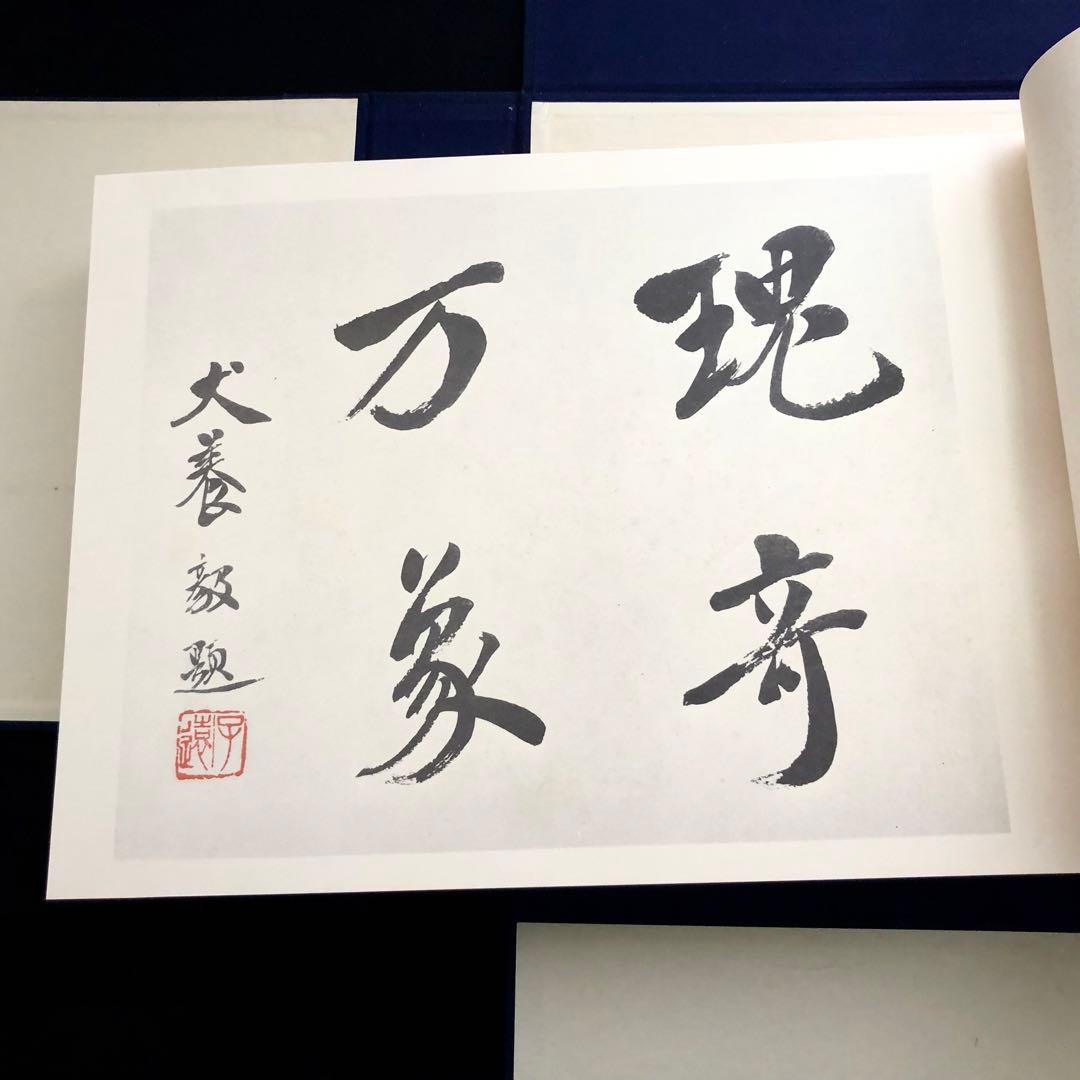 瑰奇
万象
犬養毅題
子遠